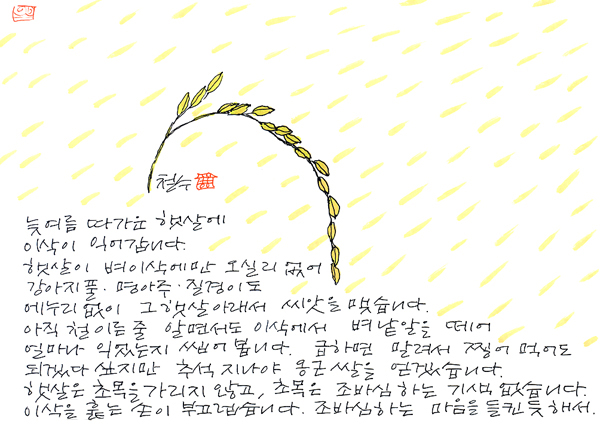 철수
늦여름 따가운 햇살에
이삭이 익어갑니다.
햇살이 벼이삭에만 오실리 없어
강아지풀·명아주·질경이도
에누리없이 그 햇살아래서 씨앗을 맺습니다.
아직 철이른줄 알면서도 이삭에서 벼낱알을 떼어
얼마나 익었는지 씹어봅니다. 급하면 말려서 찧어 먹어도
되겠다 싶지만 추석 지나야 옹근 쌀을 얻겠습니다.
햇살은 초목을 가리지 않고, 초목은 조바심하는 기색 없습니다.
이삭을 훑는 손이 부끄럽습니다. 조바심하는 마음을 들킨 듯 해서.